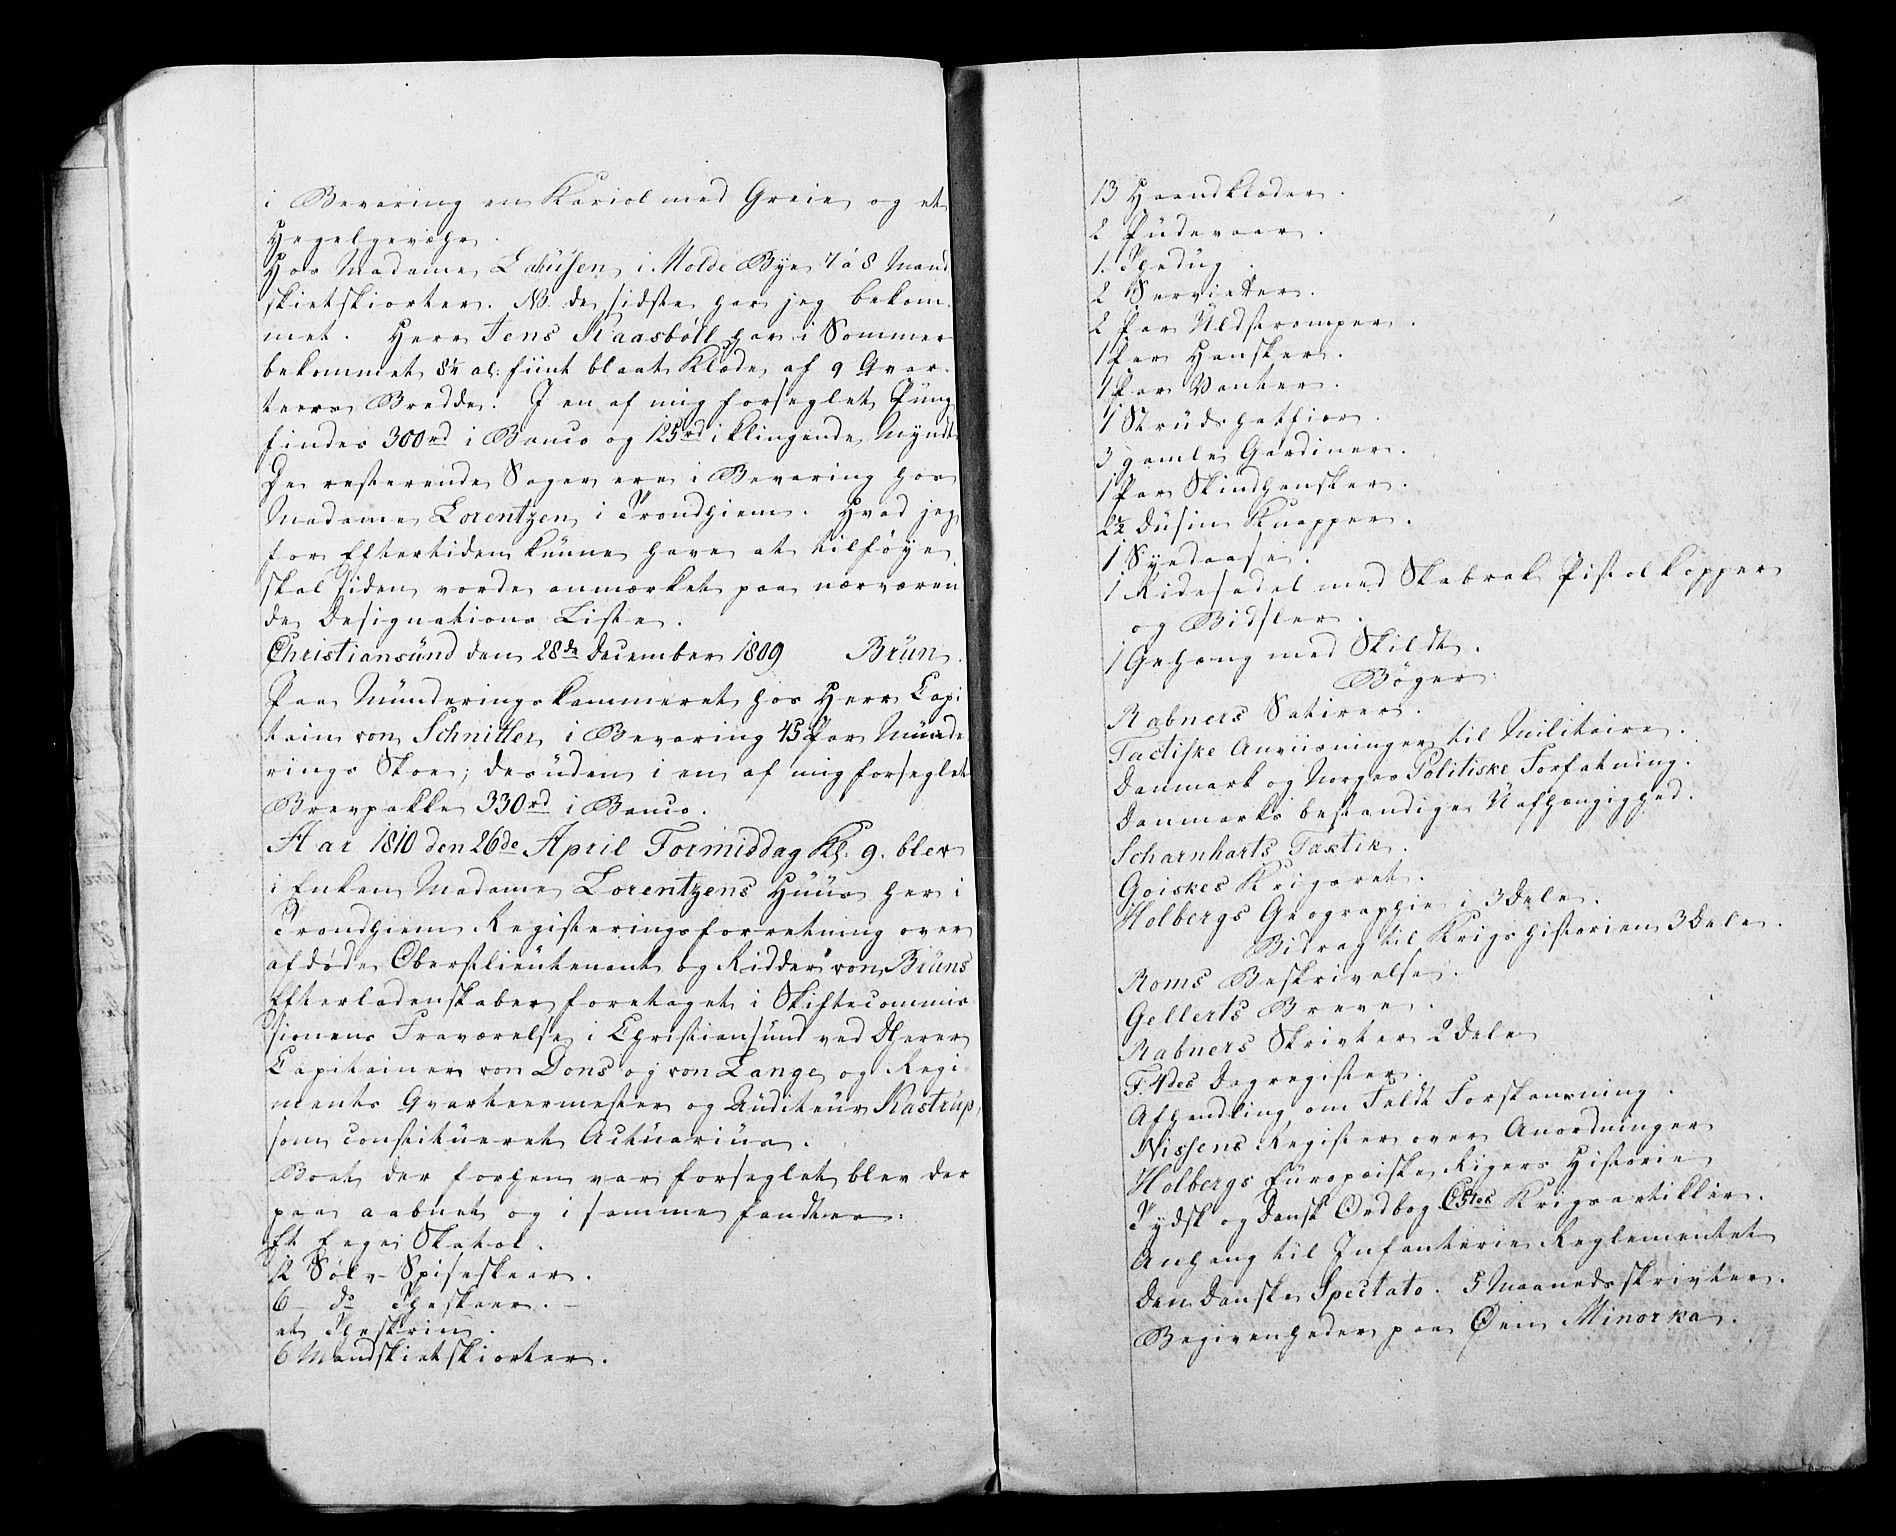 i Bevaring en Kariol med Greie og et
Hegelgevæhr.
Hos Madame Lahusen i Molde Bye 7 à 8 Mand
skietskiorter. NB de sidste har jeg bekom-
met. Herr Jens Kaasbøll har i Sommer
bekommet 8¼ al: fiint blaat Klæde af 9 Qvar-
teers Bredde. I en af mig forseglet Pung
findes 300rd i Banco og 125rd i klingende Myndt
De resterende Sager ere i Bevaring hos
Madame Lorentzen i Trondhiem. Hvad jeg
for Eftertiden kunne have at tilføye
skal siden vorde anmærket paa nærværen
de Designations Liste.
Christiansund den 28de December 1809 Brün.
Paa Munderingskammeret hos Herr Capi
tain von Schnitler i Bevaring 45 Par Munde
rings Skoe; desuden i en af mig forseglet
Brevpakke 330rd i Banco.
Aar 1810 den 26de April Formiddag Kl. 9. blev
i Enken Madame Lorentzens Huus her i
Trondhiem Registeringsforretning over
afdøde Oberstlieutenant og Ridder von Brüns
Efterladenskaber foretaget i Skiftecommis
sionens Fraværelse i Christiansund ved Dherrer
Capitainer von Dons og von Lange og Regi
ments Qvarteermester og Auditeur Kastrup,
som constitueret Actuarius.
Boet der forhen var forseglet blev der
paa aabnet og i samme fandtes:
Et Eege Skatol.
12 Sølv Spiseskeer.
6 do Theskeer.
et Theskrin.
6 Mandskietskiorter.
13 Haandklæder.
2 Pudevaar.
1. Thedug.
2 Servietter.
2 Par Uldstrømper.
1 Par Hansker.
1 Par Vanter.
1 Strudshatfior.
3 gamle Gardiner.
1 Par Skindhansker.
2½ Dusin Knapper.
1 Syedaase.
1 Ridesadel med Skabrak Pistolkapper
og Bidsler.
1 Gehæng med Skildt.
Bøger:
Rabners Satirer.
Tactiske Anviisninger til Militaire.
Danmark og Norges Politiske Forfatning.
Danmarks bestandige Uafhængighed.
Scharnharts Taktik.
Goiskes Krigsret.
Holbergs Geographie i 3 Dele.
Bidrag til Krigshistorien 3 Dele.
Roms Beskrivelse.
Gellerts Breve.
Rabners Skrivter 2 Dele
F. 4des Dagregister.
Afhandling om Feldt Forskansning.
Nissens Register over Anordninger
Holbergs Europæiske Rigers Historie
Tydsk og Dansk Ordbog C 5tes Krigsartikler.
Anhang til Infanterie Reglementet
Den Danske Spectato. 5 Maanedsskrivter.
Begivenheder paa Øen Minorka.